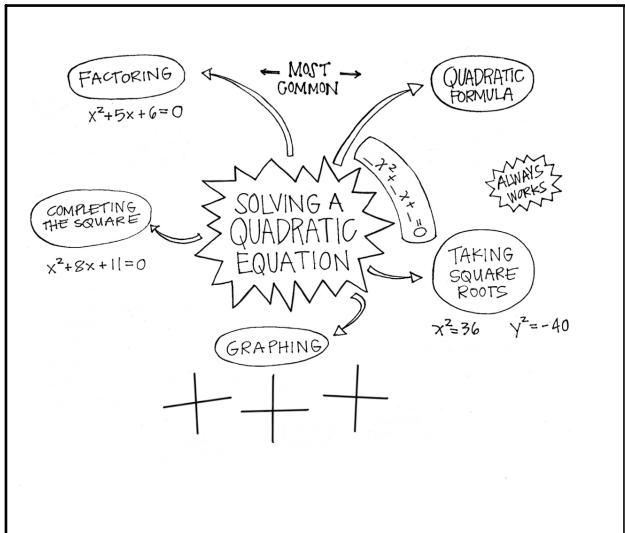 ← MOST →
COMMON
FACTORING
x²+5x+6=0
QUADRATIC
FORMULA
_x²+_x+_=0
ALWAYS
WORKS
SOLVING A
QUADRATIC
EQUATION
COMPLETING
THE SQUARE
x²+8x+11=0
TAKING
SQUARE
ROOTS
x²=36 y²=-40
GRAPHING